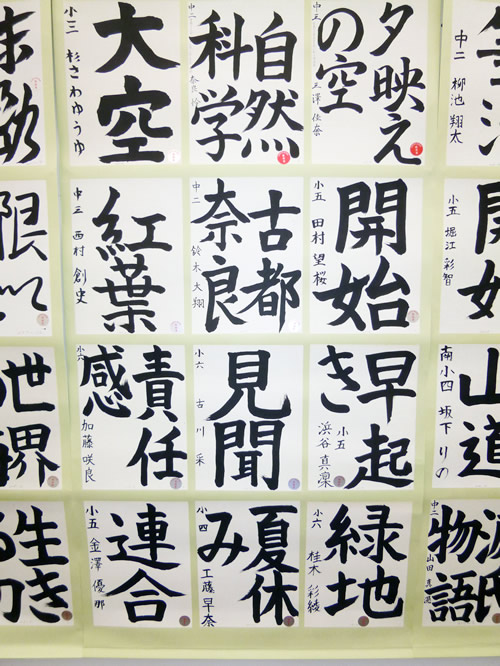 中二 柳池 翔太
夕映え
の空
中三 三澤 佳奈
自然
科学
中二
大空
小三 杉さわゆうゆ
小五 堀江 彩智
開始
小五 田村 望桜
古都
奈良
中二 鈴木 大翔
紅葉
中三 西村 創史
限
山道
南小四 坂下 りの
早起
き
小五 浜谷 真凜
見聞
小六 古川 采
責任
感
小六 加藤 咲良
世界
源氏
物語
中二 山田
緑地
小六 桂木 彩綾
夏休
み
小四 工藤 早奈
連合
小五 金澤 優那
生き
る力